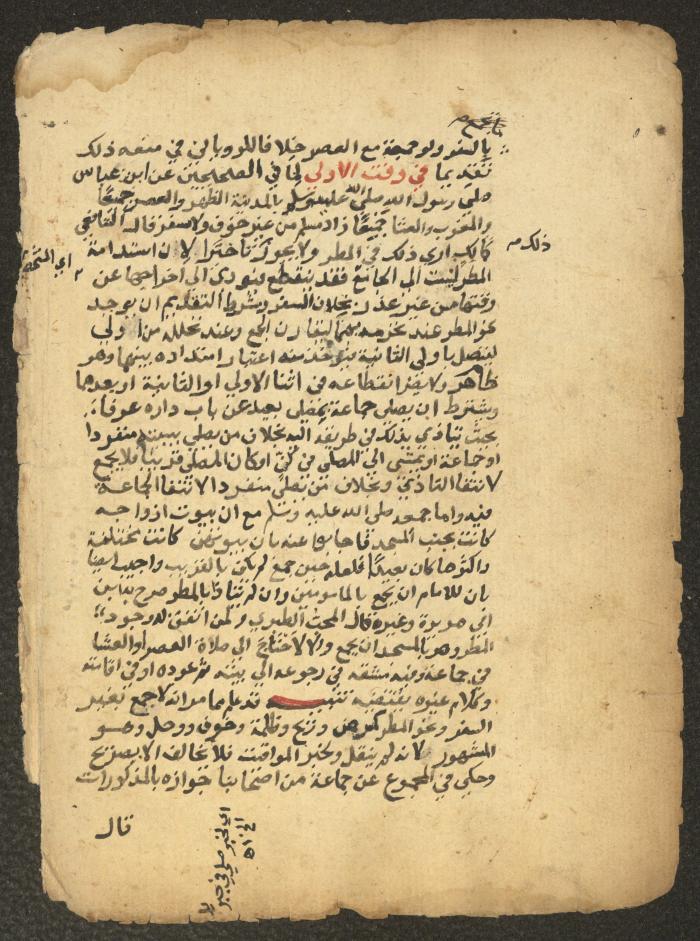 بالسفر ولو جمعة مع العصر خلافا للروياني في منعه ذلك
تقديما في وقت الاولى لما في الصحيحين عن ابن عباس
صلى رسول الله صلى الله عليه وسلم بالمدينة الظهر والعصر جميعا
والمغرب والعشا جميعا زاد مسلم من غير خوف ولا سفر قال الشافعي
كمالك ارى ذلك في المطر ولا يجوز تاخيرا لان استدامة
المطر ليست الى الجامع فقد ينقطع فيودي الى اخراجها عن
وقتها من غير عذر بخلاف السفر وشرط التقديم ان يوجد
نحو المطر عند تحرمه بهما ليقارن الجمع وعند تحلله من اولى
ليتصل باولى الثانية فيوخذ منه اعتبار امتداده بينهما وهو
ظاهر ولا يضر انقطاعه في اثنا الاولى او الثانية او بعدهما
ويشترط ان يصلي جماعة بمصلى بعيد عن باب داره عرفا
بحيث يتاذى بذلك في طريقه اليه بخلاف من يصلي ببيته منفردا
او جماعة او يمشي الى المصلى في كن او كان المصلى قريبا فلا يجمع
لانتفا التاذي وبخلاف من يصلي منفردا لانتفا الجماعة
فيه واما جمعه صلى الله عليه وسلم مع ان بيوت ازواجه
كانت بجنب المسجد فاجابوا عنه بان بيوتهن كانت مختلفة
واكثرها كان بعيدا فلعله حين جمع لم يكن بالقريب واجيب ايضا
بان للامام ان يجمع بالمامومين وان لم يتاذ بالمطر صرح به ابن
ابي هريرة وغيره قال المحب الطبري ولمن اتفق له وجود
المطر وهو بالمسجد ان يجمع والا لاحتاج الى صلاة العصر او العشا
في جماعة وفيه مشقة في رجوعه الى بيته ثم عوده او في اقامته
وكلام غيره يقتضيه تنبيه قد علم مما مر انه لا جمع بغير
السفر ونحو المطر كمرض وريح وظلمة وخوف ووحل وهو
المشهور لانه لم ينقل ولخبر المواقيت فلا يخالف الا بصريح
وحكى في المجموع عن جماعة من اصحابنا جوازه بالمذكورات
قال
ذلك